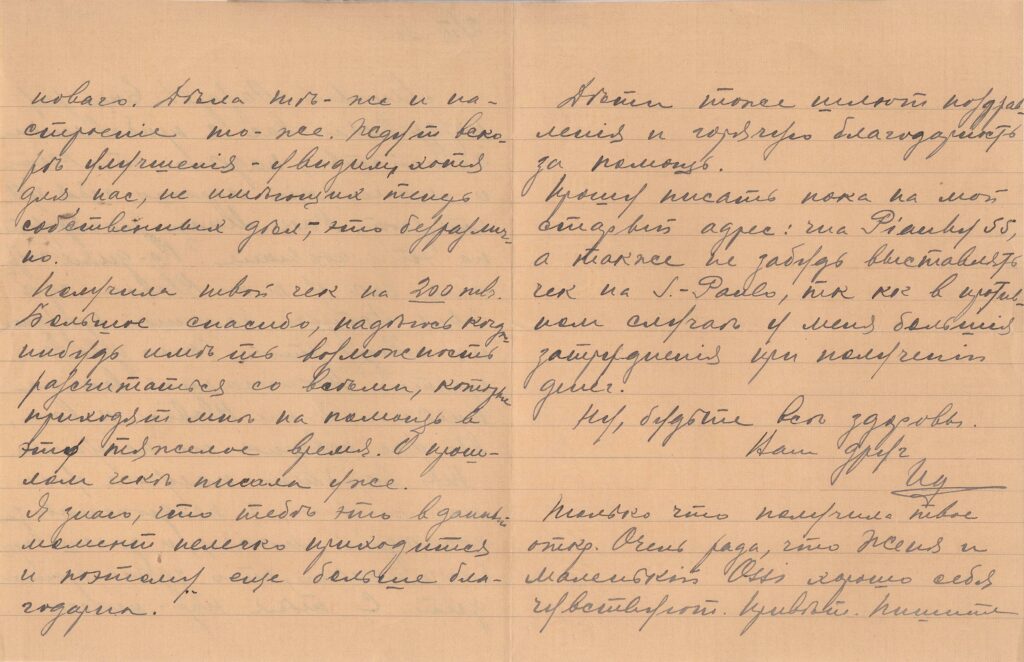 новаго. Дѣла тѣ-же и на-
строеніе то-же. Ждут вско-
рѣ улучшенія - увидим, хотя
для нас, не имѣющих теперь
собственных дѣл, это безразлич-
но.
Получила твой чек на 200
Большое спасибо, надѣюсь когда
нибудь имѣть возможность
разсчитаться со всѣми, которые
приходят мнѣ на помощь в
это тяжелое время. О прош-
лом чекѣ писала уже.
Я знаю, что тебѣ это в данный
момент нелегко приходится
и поэтому еще больше бла-
годарна.
Дѣти тоже шлют поздрав-
ленія и горячую благодарность
за помощь.
Прошу писать пока на мой
старый адрес: rua Piauhy 55,
а также не забудь выставлять
чек на S.-Paulo, тк кк в против-
ном случаѣ у меня большія
затрудненія при полученіи
денег.
Ну, будьте всѣ здоровы.
Ваш друг
Только что получила твое
откр. Очень рада, что Женя и
маленькій Ossi хорошо себя
чувствуют. Привѣт. Пишите